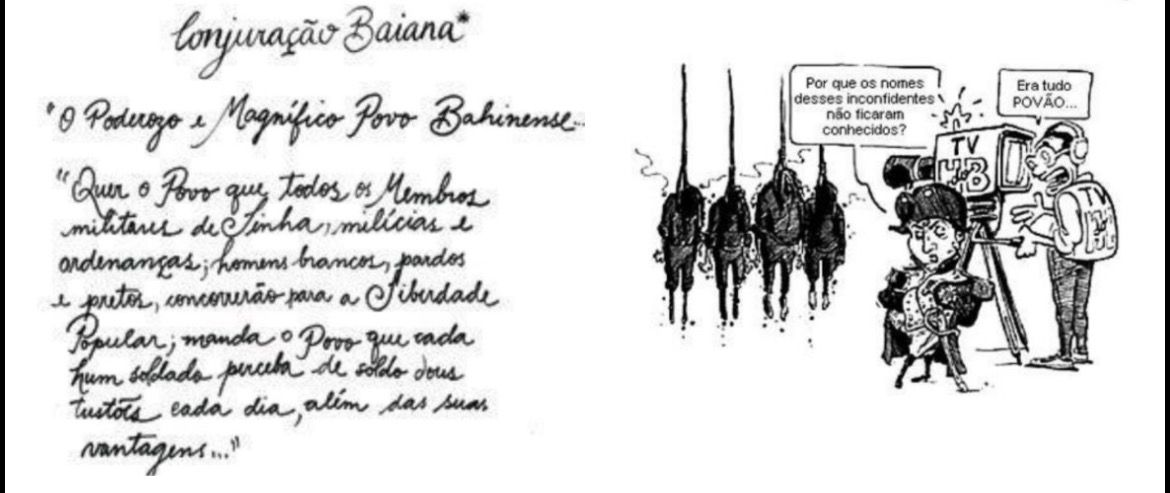 Conjuração Baiana*
"O Poderozo e Magnífico Povo Bahinense...
"Quer o Povo que todos os Membros
militares de Linha, milícias e
ordenanças; homens brancos, pardos
e pretos, concorrerão para a Liberdade
Popular; manda o Povo que cada
hum soldado perceba de soldo dous
tustões cada dia, além das suas
vantagens..."
Por que os nomes
desses inconfidentes
não ficaram
conhecidos?
Era tudo
POVÃO...
TV
HdB
TV